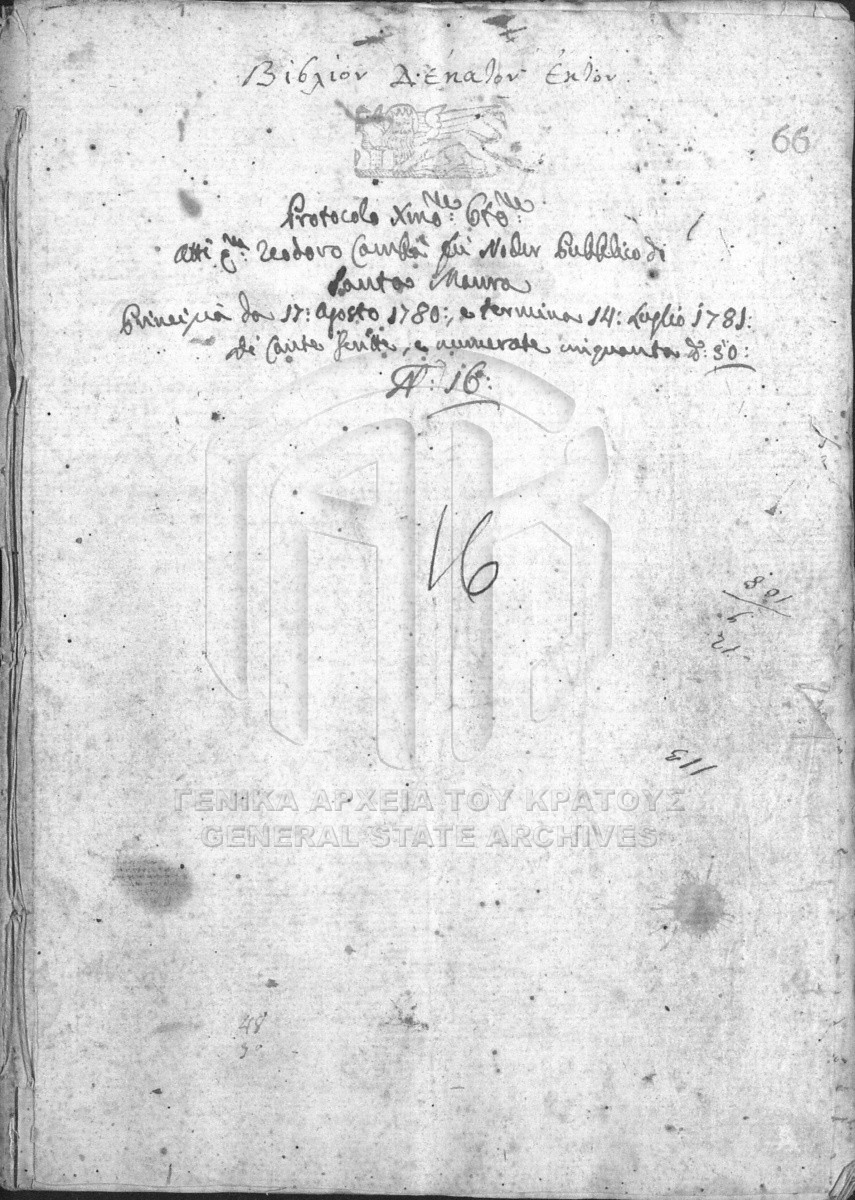 Βιβλίον Δέκατον Έκτον
66
Protocolo Xmo: 6to:
Atti qm: Teodoro fù Nodr Pubblico di
Santa Maura
Principia da 17: Agosto 1780:, e termina 14: Luglio 1781:
di Carte Scritte, e numerate cinquanta d: 50:
N: 16:
16
108
9
12
113
ΓΕΝΙΚΑ ΑΡΧΕΙΑ ΤΟΥ ΚΡΑΤΟΥΣ
GENERAL STATE ARCHIVES
48